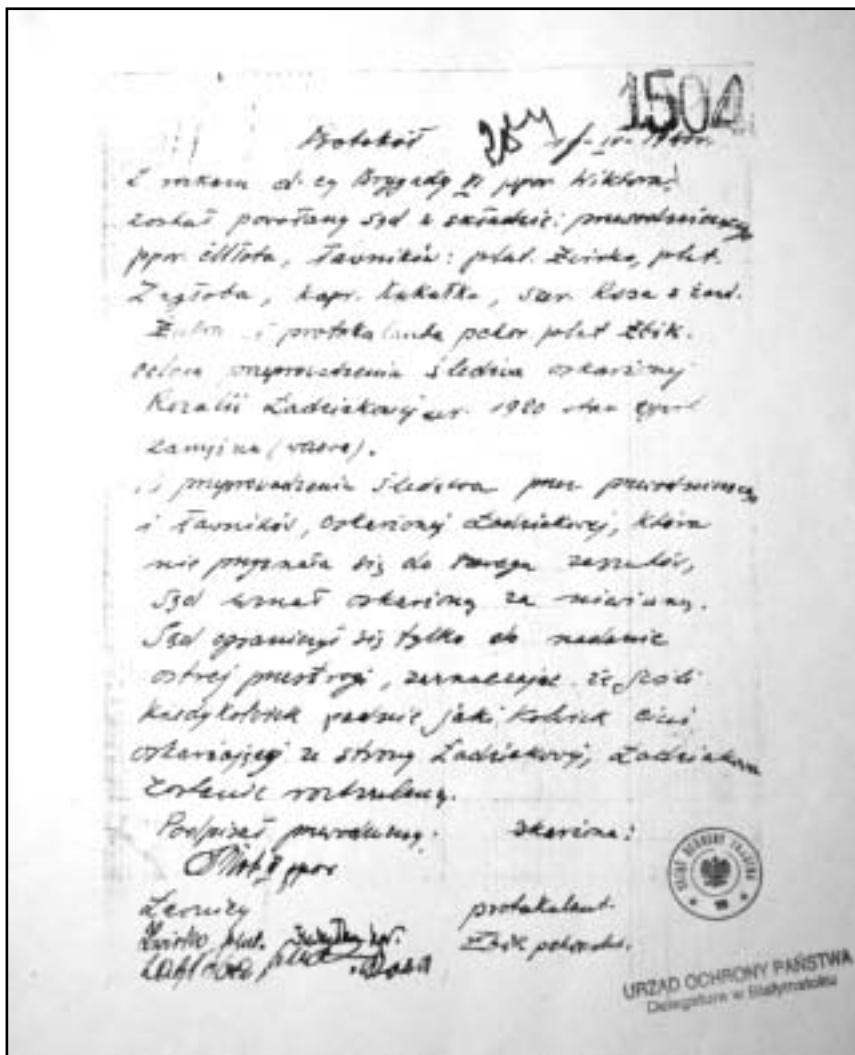 1504
Protokół
Z rozkazu d-cy Brygady VI ppor. Wiktora
został powołany sąd w składzie: przewodniczący
ppor. Młota, ławników: plut. Żwirko, plut.
Zagłoba, kapr. Kukułka, szer. Rosa z żand.
i protokolanta pchor. plut Żbik.
celem przeprowadzenia śledztwa oskarżonej
Rozalii Ładziakowej ur. 1920 stan cywil
zamężna (wdowa).
przeprowadzenia śledztwa przez przewodniczącego
i ławników, oskarżonej Ładziakowej, która
nie przyznała się do zarzutów,
Sąd uznał oskarżoną za niewinną.
Sąd ograniczył się tylko do nadania
ostrej przestrogi, zaznaczając że jeśli
kiedykolwiek padnie jakikolwiek cień
oskarżający ze strony Ładziakowej, Ładziakowa
zostanie rozstrzelana.
Podpisał przewodniczący. skarżona:
Młot ppor
Ławnicy protokalant.
Żwirko plut. Żbik
Zagłoba plut Rosa
URZĄD OCHRONY PAŃSTWA
URZĄD OCHRONY PAŃSTWA
Delegatura w Białymstoku